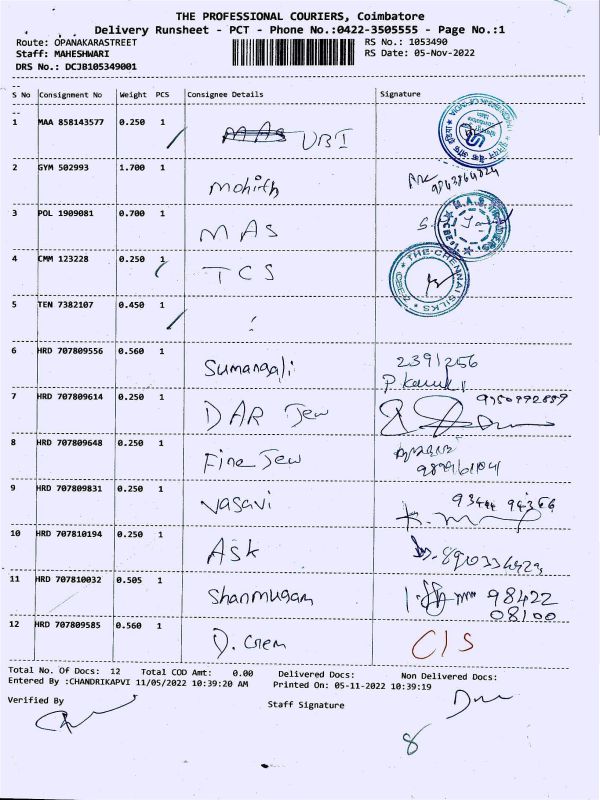 THE PROFESSIONAL COURIERS, Coimbatore
Delivery Runsheet - PCT - Phone No.:0422-3505555 - Page No.:1
Route: OPANAKARASTREET RS No.: 1053490
Staff: MAHESHWARI RS Date: 05-Nov-2022
DRS No.: DCJB105349001
S No Consignment No Weight PCS Consignee Details Signature
1 MAA 858143577 0.250 1 UBI
2 GYM 502993 1.700 1 Mohith
3 POL 1909081 0.700 1 MAS
4 CMM 123228 0.250 1 TCS THE CHENNAI SILKS
5 TEN 7382107 0.450 1
6 HRD 707809556 0.560 1 Sumangali 2391256
7 HRD 707809614 0.250 1 DAR Jew
8 HRD 707809648 0.250 1 Fine Jew
9 HRD 707809831 0.250 1 Vasavi
10 HRD 707810194 0.250 1 Ask
11 HRD 707810032 0.505 1 Shanmugam 98422
08100
12 HRD 707809585 0.560 1 D. Crem C/S
Total No. Of Docs: 12 Total COD Amt: 0.00 Delivered Docs: Non Delivered Docs:
Entered By :CHANDRIKAPVI 11/05/2022 10:39:20 AM Printed On: 05-11-2022 10:39:19
Verified By Staff Signature
8